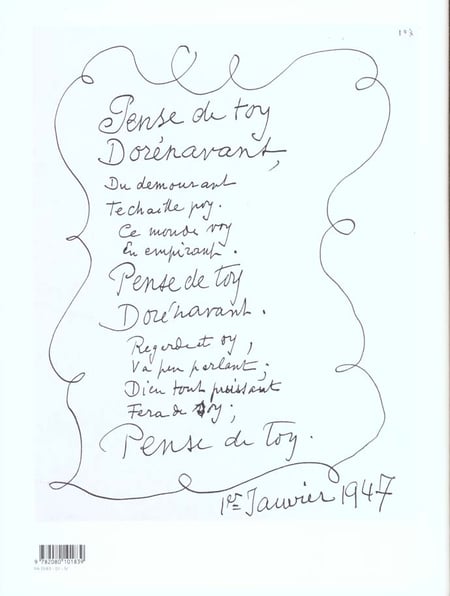 Pense de toy
Dorénavant,
Du demourant
Te chaille poy.
Ce monde voy
En empirant.
Pense de toy
Dorénavant.
Regarde et oy,
Va peu parlant;
Dieu tout puissant
Fera de toy;
Pense de Toy.
1er Janvier 1947
9 782080 101839